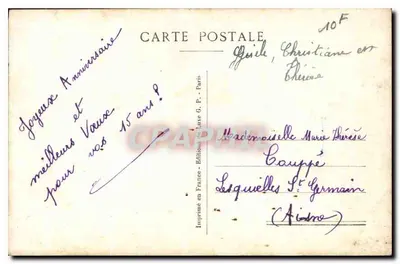 10F
CARTE POSTALE
Gisèle, Christiane et
Thérèse
Joyeux Anniversaire
et
meilleurs Vœux
pour vos 15 ans!
Mademoiselle Marie Thérèse
Couppé
Lesquielles St Germain
(Aisne)
Imprimé en France - Editions Luxe G. P. - Paris